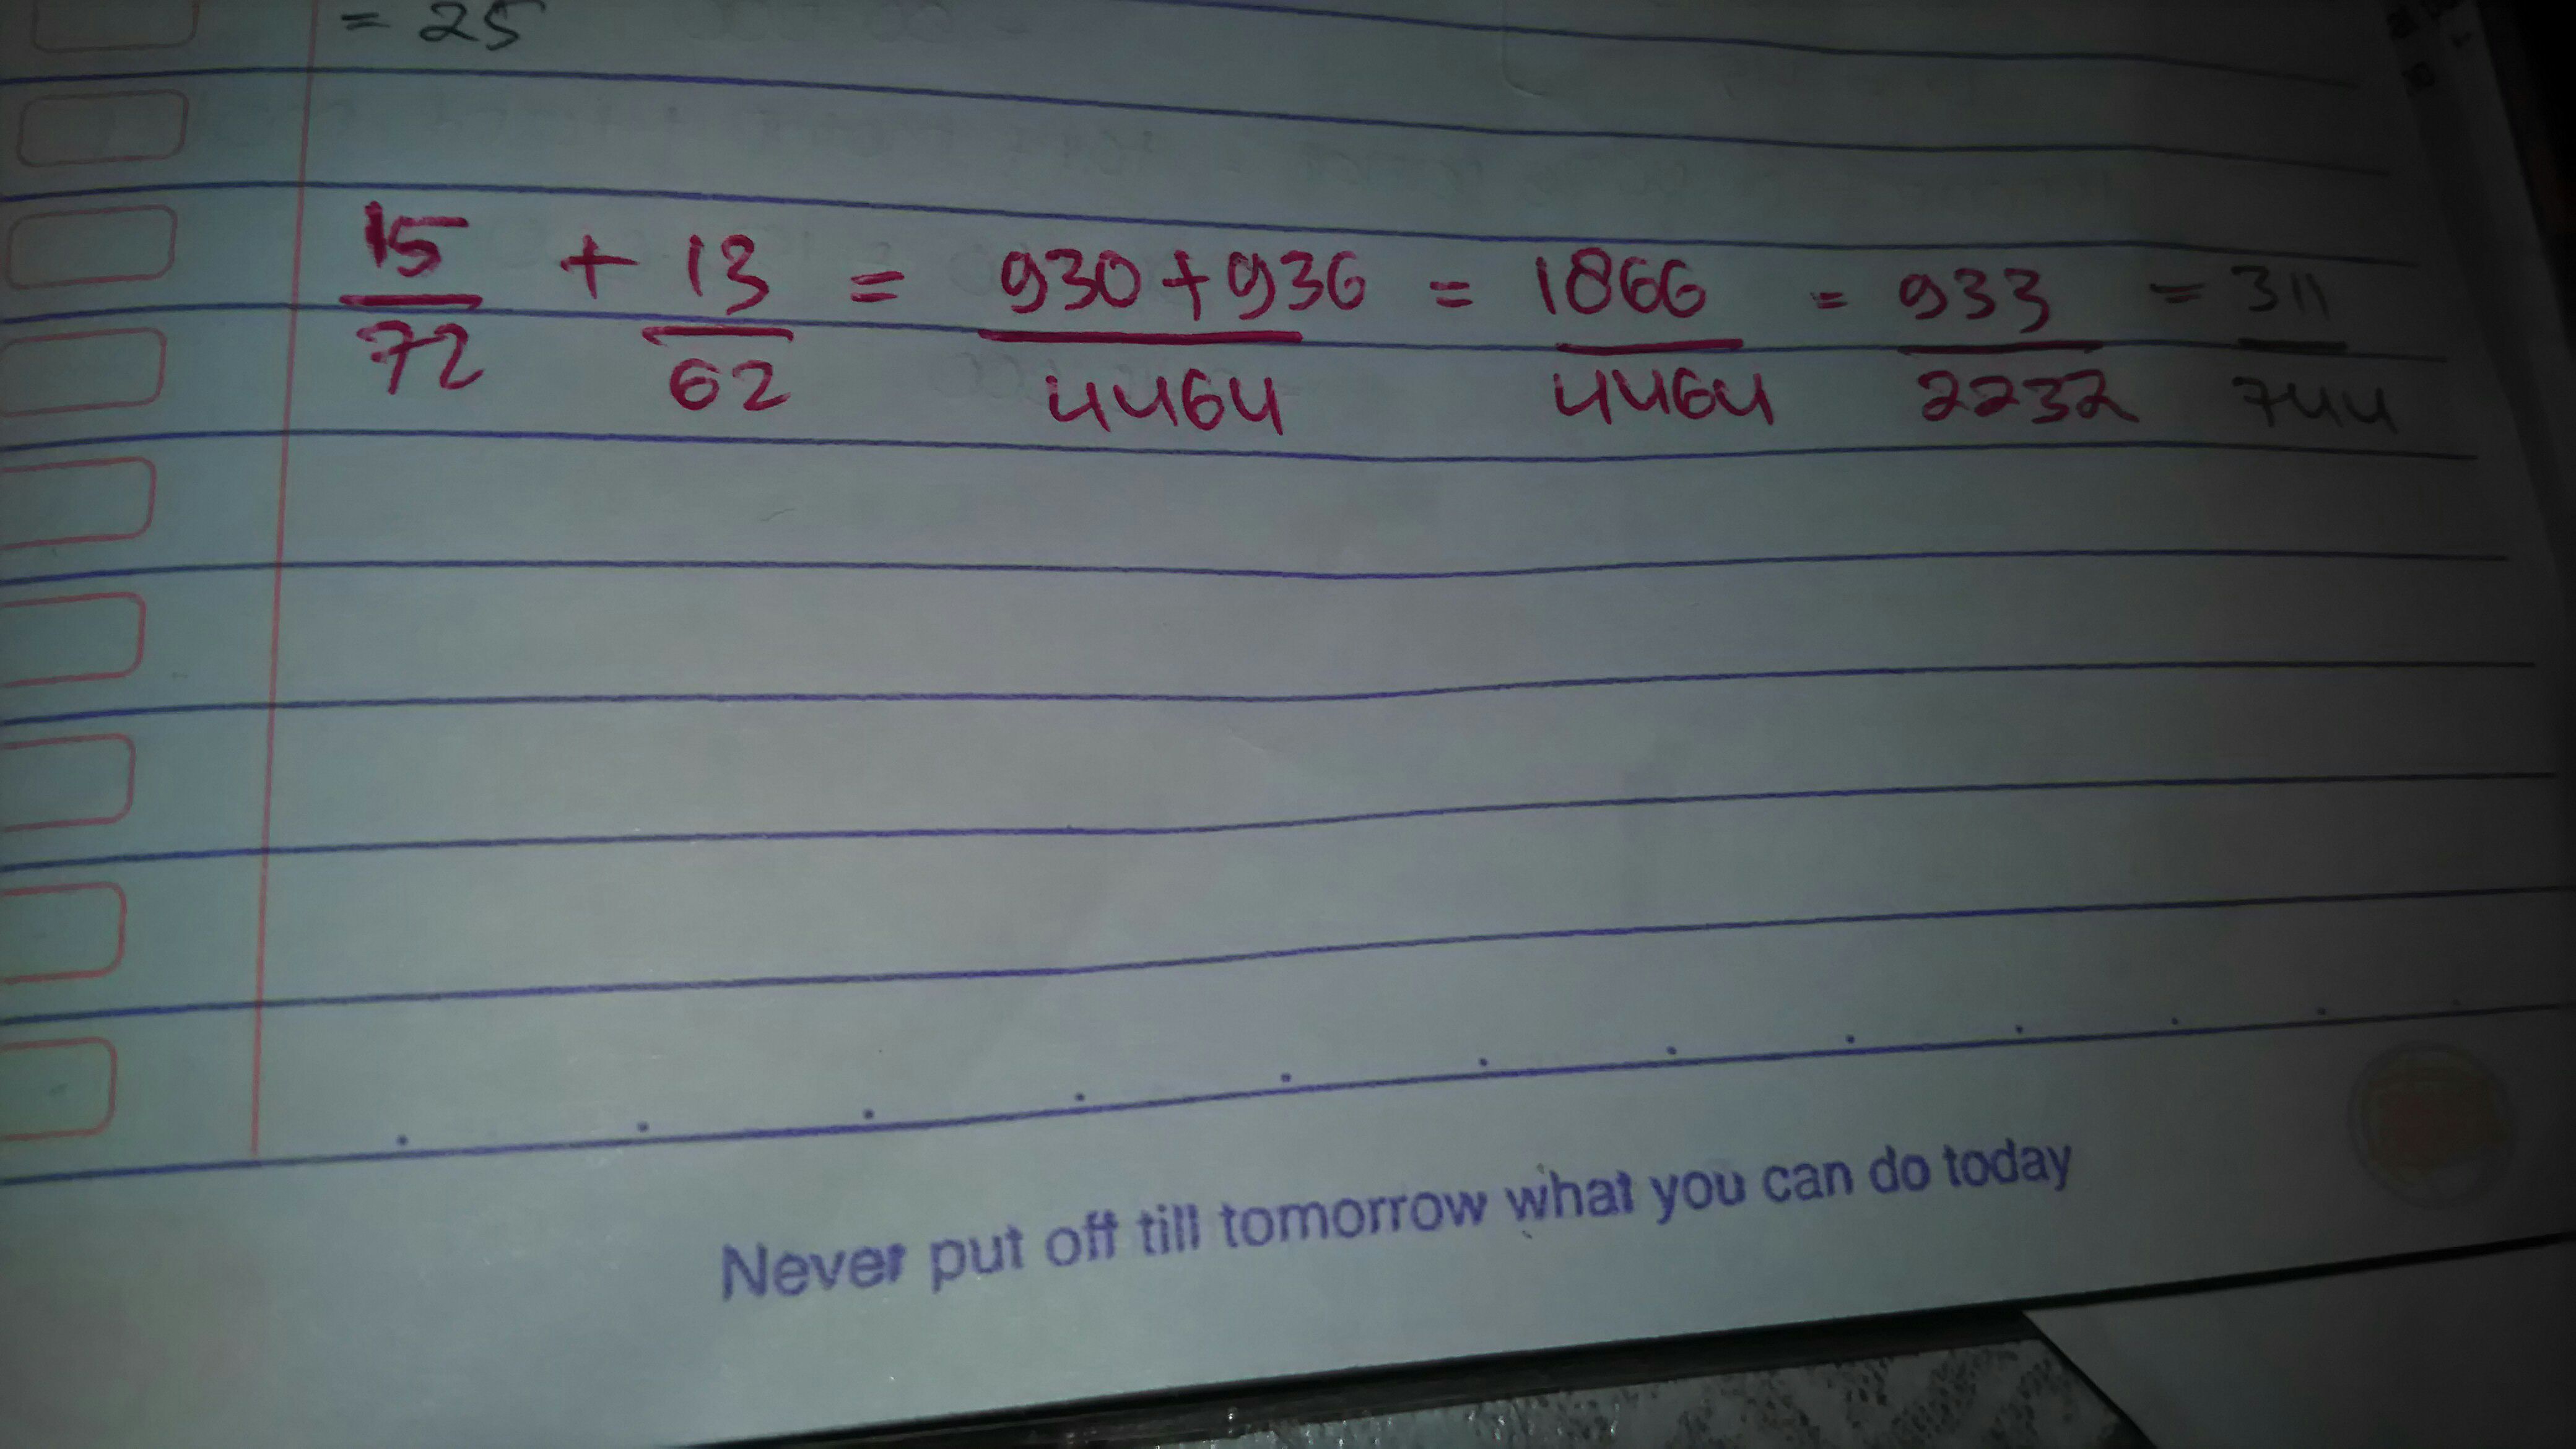 = 25
15/72 + 13/62 = 930+936/4464 = 1866/4464 = 933/2232 = 311/744
Never put off till tomorrow what you can do today